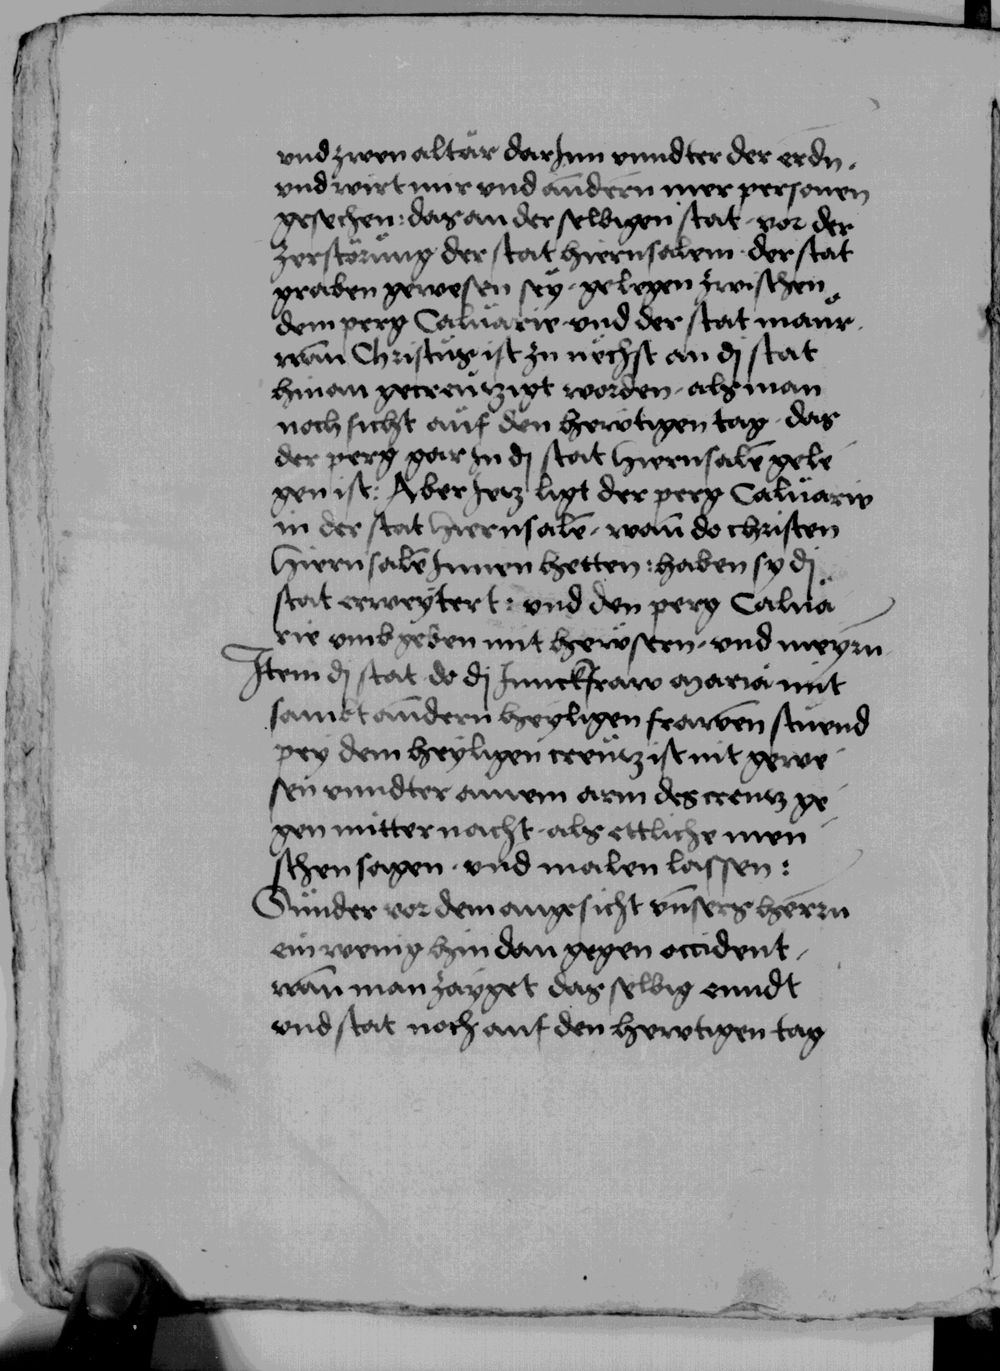 vnd zwen altär dar Jnn vnndter der erdn.
vnd wirt mir vnd anndern mer personen
gesechen: das an der selbigen stat · vor der
zerstörüng der stat hierusalem · der stat
graben gewesen seÿ · gelegen zwischen
dem perg Caluarie vnd der stat maür.
wan̄ Christus ist zu nechst an dj stat
hinan gecreützigt worden · als man
noch sicht aüf den heẅtigen tag · das
der perg gar Jn dj stat hierusalē gele
gen ist: Aber Jetz ligt der perg Caluarie
in der stat hierusalē · wan̄ do christen
hierusalē Jnnen hetten: haben sy dj
stat erweÿtert: vnd den perg Calua
rie vmbgeben mit heẅsern · vnd meÿrn
Item dj stat do dj Junckfraw maria mit
sambt anndern heÿligen frawen stuend
peÿ dem heÿligen creütz ist nit gewe
sen vnndter ainem arm des creutz ge
gen mitternacht · als ettliche men
schen sagen · vnd malen lassen:
Sünder vor dem angesicht vn̄sers herrn
ein wenig hin dan gegen occident ·
wan̄ man zaÿget das selbig enndt
vnd stat noch auf den hewtigen tag